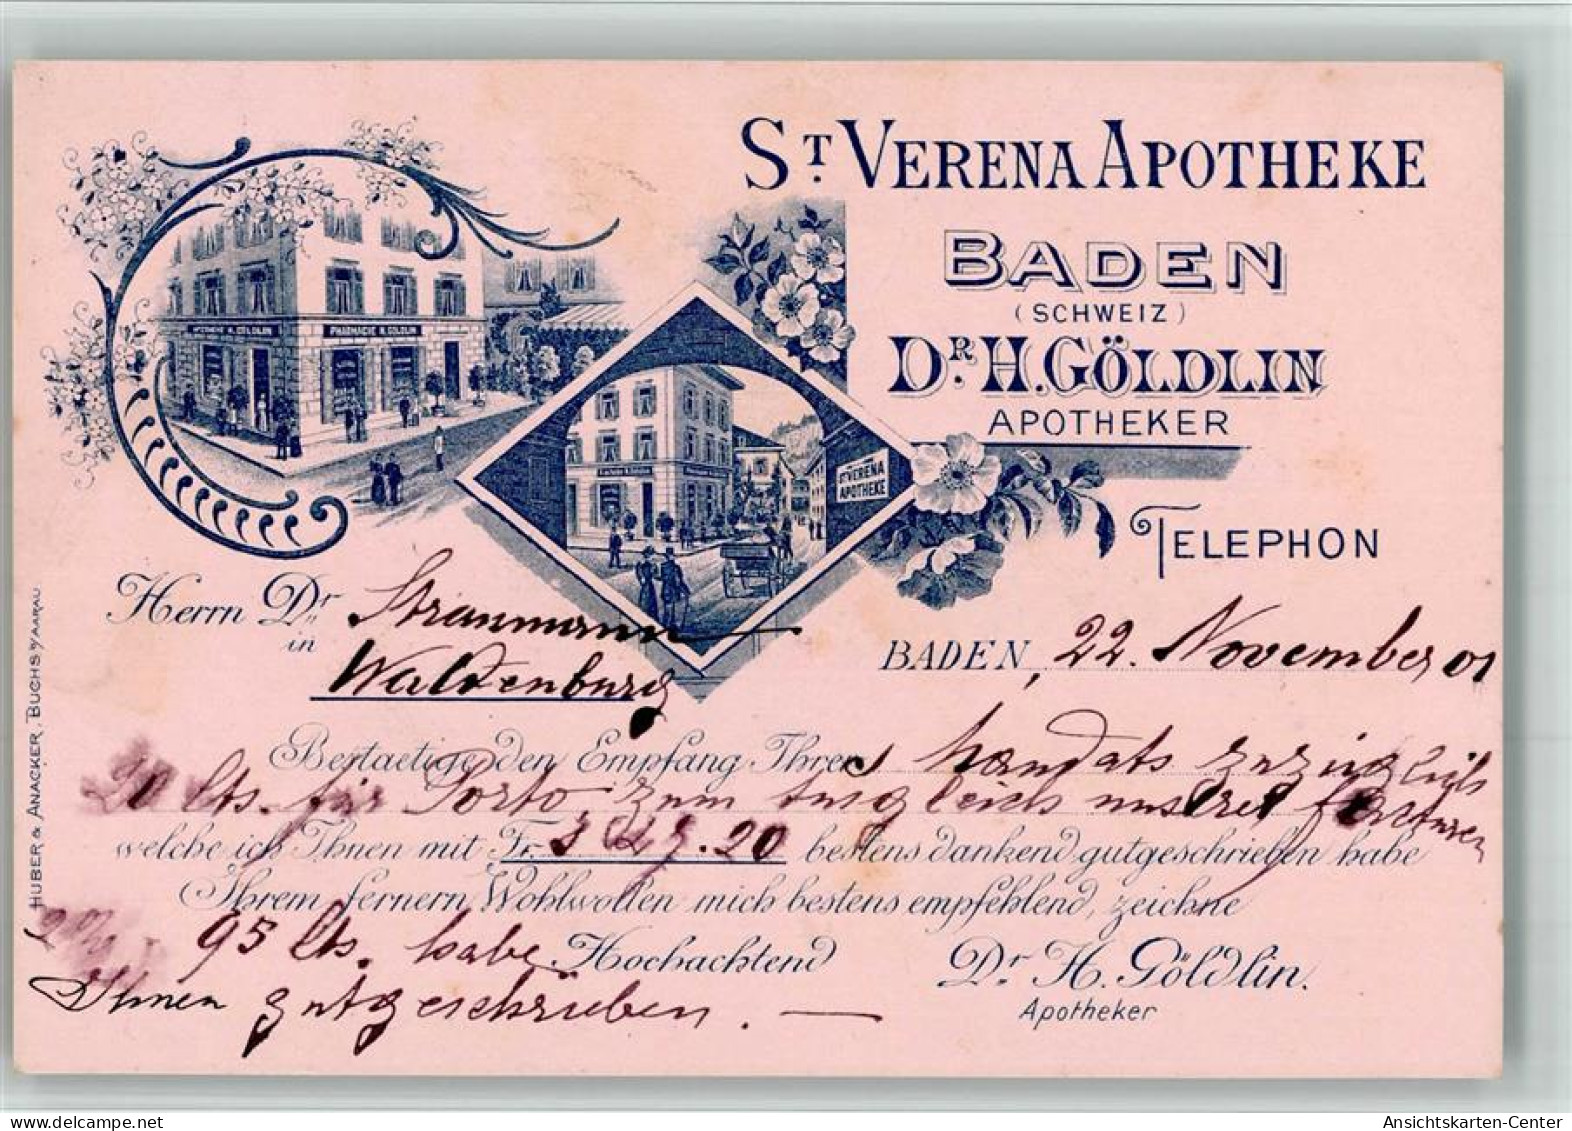 ST. VERENA APOTHEKE
BADEN
(SCHWEIZ)
DR. H. GÖLDLIN
APOTHEKER
TELEPHON
PHARMACIE H. GÖLDLIN
ST VERENA
APOTHEKE
Herrn Dr. Straumann
in
Waldenburg
BADEN, 22. November 01
Bestaetige den Empfang Ihres Mandats zuzüglich
20 Cts. für Porto, zum Ausgleich unserer Facturen
welche ich Ihnen mit Fr. 20 bestens dankend gutgeschrieben habe
Ihrem fernern Wohlwollen mich bestens empfehlend, zeichne
95 Cts. habe Hochachtend
Ihnen gutgeschrieben. —
Dr. H. Göldlin.
Apotheker
HUBER & ANACKER, BUCHS B/AARAU
Ansichtskarten-Center
delcampe.net